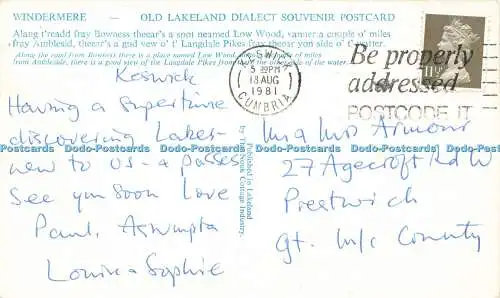 WINDERMERE — OLD LAKELAND DIALECT SOUVENIR POSTCARD
Alang t'radd fray Bowness theear's a spot neamed Low Wood, vanner a couple o' miles
fray Ambleside, theear's a gud vew o' t' Langdale Pikes fray theear yon side o' t' watter.
Along the road from Bowness there is a place named Low Wood, nearly a couple of miles
from Ambleside, there is a good view of the Langdale Pikes from there the other side of the water.
KESWICK
5 PM
18 AUG
1981
CUMBRIA
Be properly
addressed
POSTCODE IT
Keswick
Having a super time
discovering Lakes
new to us - & passes
See you soon Love
Paul, Aswmpta
Louise & Sophie
Published in Lakeland
by The Nook Cottage Industry.
Mr & Mrs Armour
27 Agecroft Rd W
Prestwich
Gt. M/c County
Dodo-Postcards Dodo-Postcards Dodo-Postcards Dodo-Postcards Dodo-Postcards Dodo-Postcards